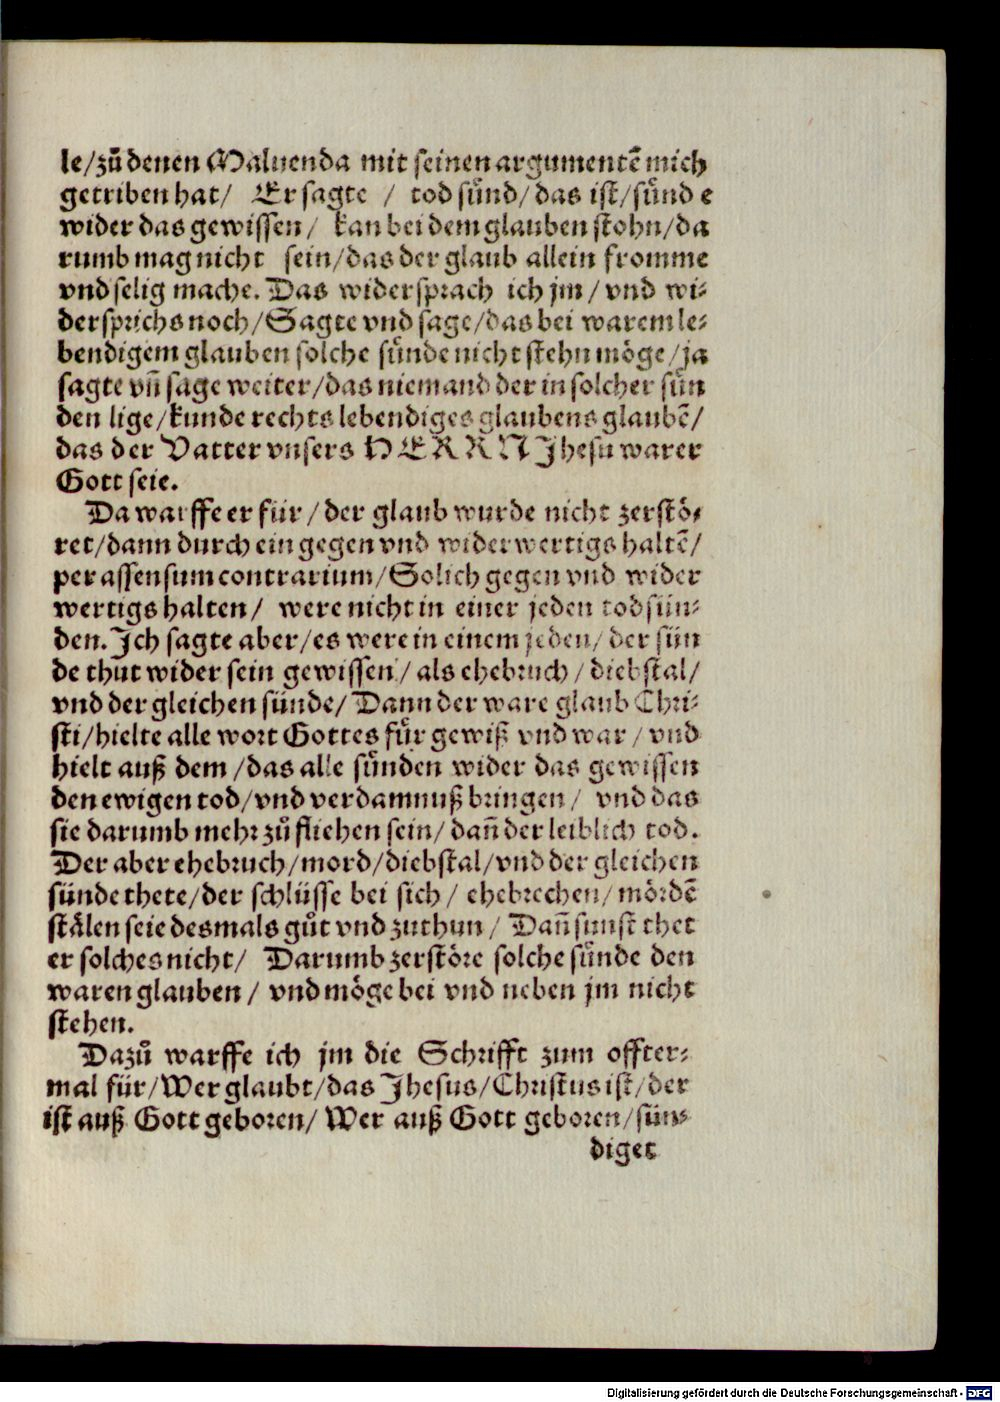 le/zů denen Maluenda mit seinen argumentē mich
getriben hat/ Er sagte / tod sünd/das ist/sünd e
wider das gewissen/ kan bei dem glauben stohn/da
rumb mag nicht sein/das der glaub allein fromme
vnd selig mache. Das widersprach ich jm/vnd wi⸗
dersprichs noch/Sagte vnd sage/das bei warem le⸗
bendigem glauben solche sünde nicht stehn möge/ja
sagte vñ sage weiter/das niemand der in solcher sün
den lige/kunde rechts lebendiges glaubens glaubē/
das der Vatter vnsers HERRN Jhesu warer
Gott seie.
Da warffe er für/der glaub wurde nicht zerstö⸗
ret/dann durch ein gegen vnd widerwertigs haltē/
per assensum contrarium/Solich gegen vnd wider
wertigs halten/ were nicht in einer jeden todsün⸗
den. Ich sagte aber/es were in einem jeden/der sün
de thut wider sein gewissen/als ehebruch/diebstal/
vnd der gleichen sünde/Dann der ware glaub Chri⸗
sti/hielte alle wort Gottes für gewiß vnd war/vnd
hielt auß dem/das alle sünden wider das gewissen
den ewigen tod/vnd verdamnuß bringen/ vnd das
sie darumb mehr zů fliehen sein/dañ der leiblich tod.
Der aber ehebruch/mord/diebstal/vnd der gleichen
sünde thete/der schlüsse bei sich/ ehebrechen/mördē
stälen seie desmals gůt vnd zuthun/ Dañ sunst thet
er solches nicht/ Darumb zerstöre solche sünde den
waren glauben/ vnd möge bei vnd neben jm nicht
stehen.
Dazů warffe ich jm die Schrifft zum offter⸗
mal für/Wer glaubt/das Jhesus/Christus ist/der
ist auß Gott geboren/ Wer auß Gott geboren/sün⸗
diget
Digitalisierung gefördert durch die Deutsche Forschungsgemeinschaft - DFG